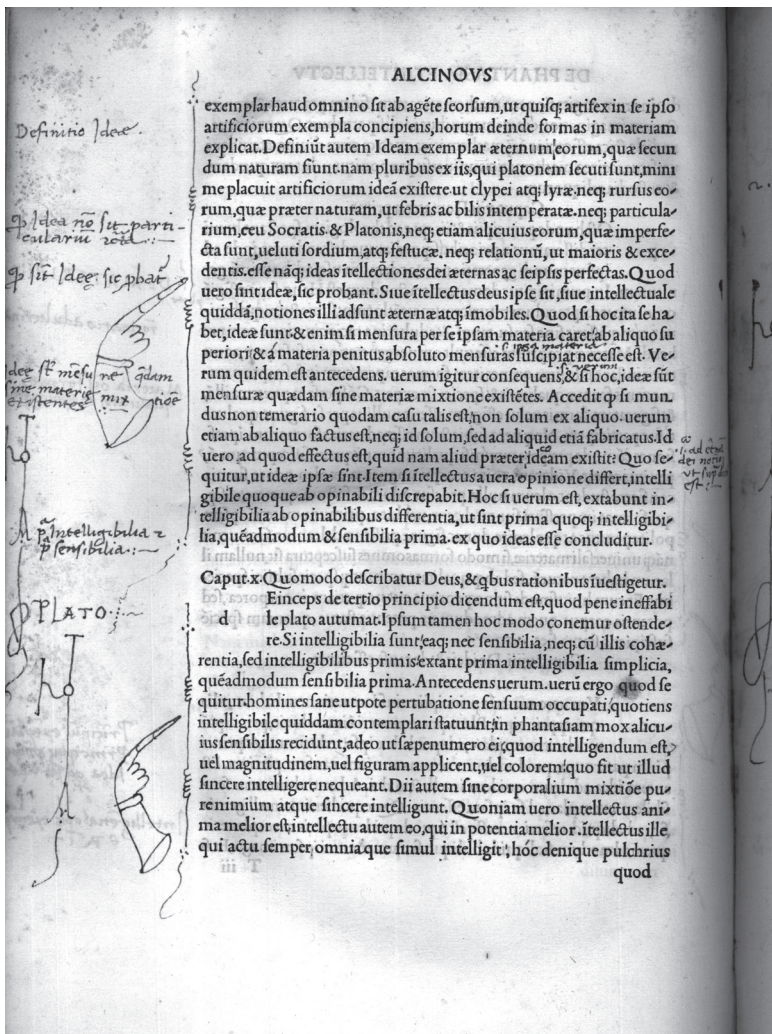 ALCINOVS
exemplar haud omnino sit ab agẽte seorsum, ut quisq; artifex in se ipso
artificiorum exempla concipiens, horum deinde formas in materiam
explicat. Definiũt autem Ideam exemplar æternum eorum, quæ secun
dum naturam fiunt. nam pluribus ex iis, qui platonem secuti sunt, mini
me placuit artificiorum ideã existere. ut clypei atq; lyræ. neq; rursus eo-
rum, quæ præter naturam, ut febris ac bilis intemperatæ. neq; particula-
rium, ceu Socratis & Platonis, neq; etiam alicuius eorum, quæ imperfe-
cta sunt, ueluti sordium, atq; festucæ. neq; relationũ, ut maioris & exce-
dentis. esse nãq; ideas ĩtellectiones dei æternas ac seipsis perfectas. Quod
uero sint ideæ, sic probant. Siue ĩtellectus deus ipse sit, siue intellectuale
quiddã, notiones illi adsunt æternæ atq; ĩmobiles. Quod si hoc ita se ha-
bet, ideæ sunt. & enim si mensura per se ipsam materia caret, ab aliquo su
periori & á materia penitus absoluto mensuras suscipiat necesse est. Ve-
rum quidem est antecedens. uerum igitur consequens, & si hoc, ideæ sũt
mensuræ quædam sine materiæ mixtione existẽtes. Accedit ꝙ si mun
dus non temerario quodam casu talis est, non solum ex aliquo. uerum
etiam ab aliquo factus est, neq; id solum, sed ad aliquid etiã fabricatus. Id
uero, ad quod effectus est, quid nam aliud præter ideam existit? Quo se-
quitur, ut ideæ ipsæ sint. Item si ĩtellectus a uera opinione differt, intelli
gibile quoque ab opinabili discrepabit. Hoc si uerum est, extabunt in-
telligibilia ab opinabilibus differentia, ut sint prima quoq; intelligibi-
lia, quẽadmodum & sensibilia prima. ex quo ideas esse concluditur.
Caput. x. Quomodo describatur Deus, & qbus rationibus ĩuestigetur.
d Einceps de tertio principio dicendum est, quod pene ineffabi
le plato autumat. Ipsum tamen hoc modo conemur ostende-
re. Si intelligibilia sunt, eaq; nec sensibilia, neq; cũ illis cohæ-
rentia, sed intelligibilibus primis extant prima intelligibilia simplicia,
quẽadmodum sensibilia prima. Antecedens uerum. uerũ ergo quod se
quitur. homines sane utpote pertubatione sensuum occupati, quotiens
intelligibile quiddam contemplari statuunt, in phantasiam mox alicu-
ius sensibilis recidunt, adeo ut sæpenumero ei, quod intelligendum est,
uel magnitudinem, uel figuram applicent, uel colorem. quo fit ut illud
sincere intelligere nequeant. Dii autem sine corporalium mixtiõe pu-
re nimium atque sincere intelligunt. Quoniam uero intellectus ani-
ma melior est, intellectu autem eo, qui in potentia melior. ĩtellectus ille,
qui actu semper, omniaque simul intelligit, hóc denique pulchrius
T iii
quod
Definitio Ideæ.
ꝙ Idea nõ sit parti-
culariũ
ꝙ sĩt Ideę sic pbat
Ideę sũt mẽsu ne qdam
sinę materię mix tiõe
existentes
pª Intelligibilia
pª sensibilia
PLATO